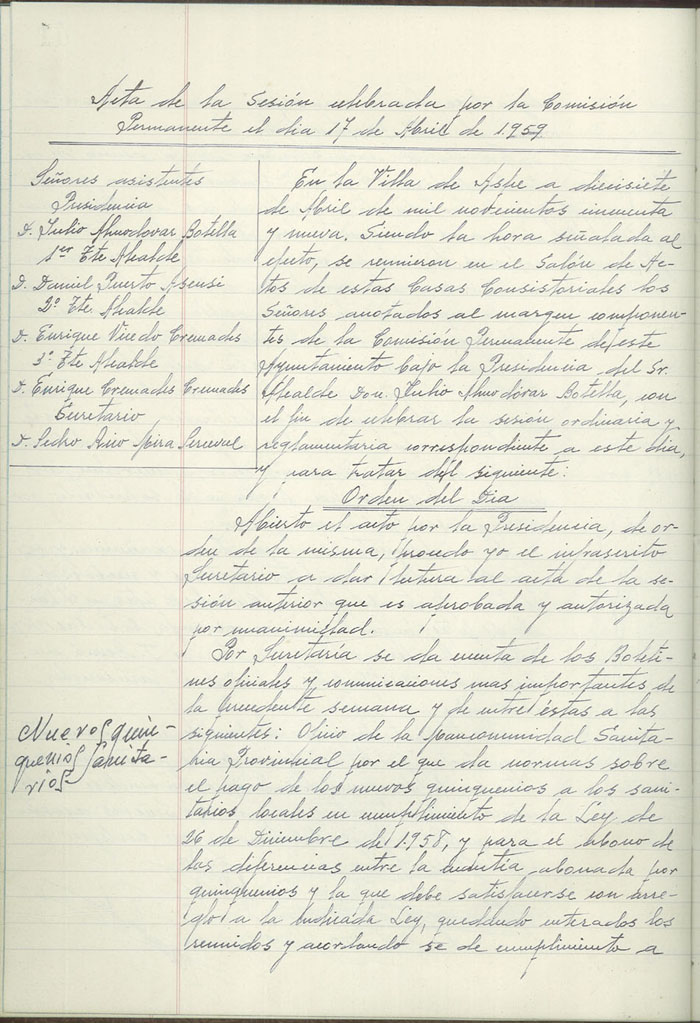 Acta de la Sesión celebrada por la Comisión
Permanente el dia 17 de Abril de 1.959
Señores asistentes
Presidencia
D. Julio Almodovar Botella
1er Tte Alcalde
D. Daniel Puerto Asensi
2º Tte. Alcalde
D. Enrique Vicedo Cremades
3º Tte Alcalde
D. Enrique Cremades Cremades
Secretario
D. Pedro Rico Mira Perceval
En la Villa de Aspe a diecisiete
de Abril de mil novecentos cincuenta
y nueva. Siendo la hora señalada al
efecto, se reunieron en el Salón de Ac-
tos de estas Casas Consistoriales los
Señores anotados al margen componen-
tes de la Comisión Permanente de este
Ayuntamiento bajo la Presidencia del Sr.
Alcalde Don Julio Almodóvar Botella, con
el fin de celebrar la sesión ordinaria y
reglamentaria correspondiente a este dia,
y para tratar del siguiente:
Orden del Dia
Abierto el acto por la Presidencia, de or-
den de la misma, procedo yo el infrascrito
Secretario a dar lectura al acta de la se-
sión anterior que es aprobada y autorizada
por unanimidad.
Por Secretaría se da cuenta de los Boleti-
nes oficiales y comunicaciones mas importantes de
la precedente semana y de entre éstas a las
siguientes: Oficio de la Mancomunidad Sanita-
ria Provincial por el que da normas sobre
el pago de los nuevos quinquenios a los sani-
tarios locales en cumplimiento de la Ley de
26 de Diciembre de 1.958, y para el abono de
las diferencias entre la cuantía abonada por
quinquenios y la que debe satisfacerse con arre-
glo a la indicada Ley, quedando enterados los
reunidos y acordando se de cumplimiento a
Nuevos quin-
quenios Sanita-
rios